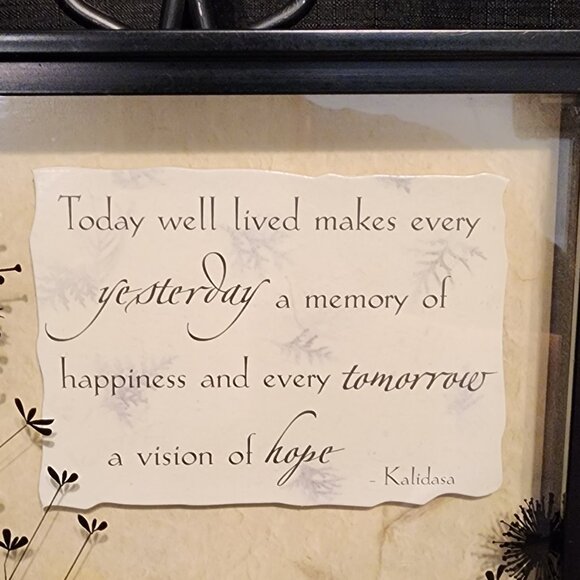 Today well lived makes every
yesterday a memory of
happiness and every tomorrow
a vision of hope
- Kalidasa